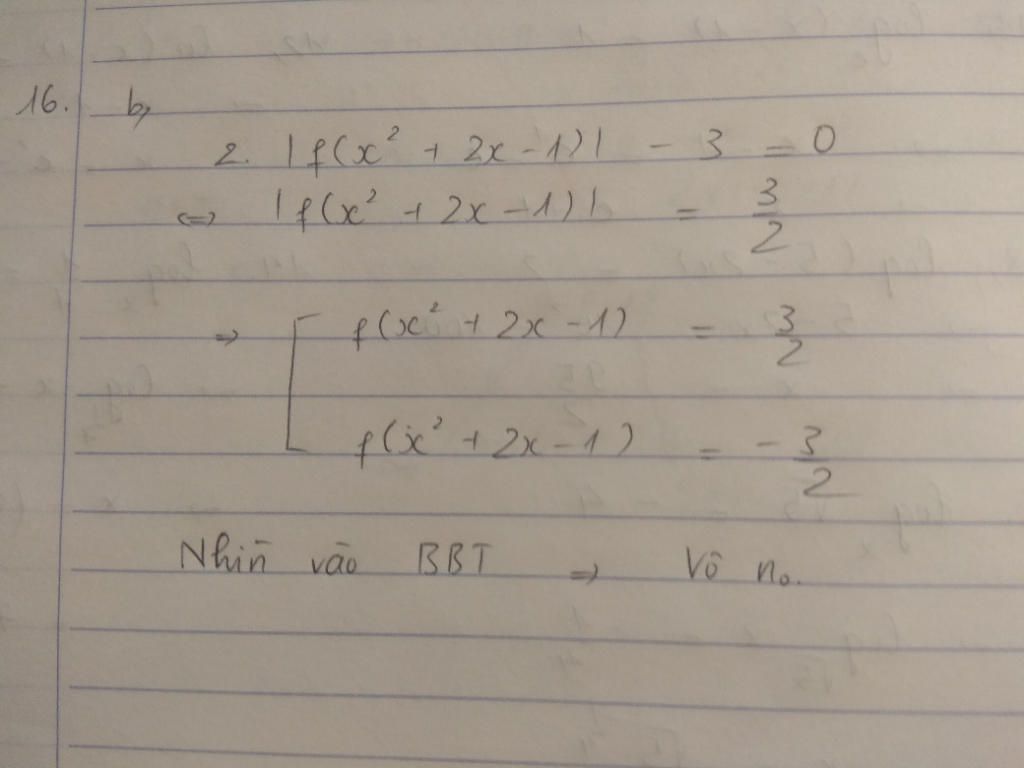 16. b,
2. |f(x² + 2x - 1)| - 3 = 0
<=> |f(x² + 2x - 1)| = 3/2
=> [ f(x² + 2x - 1) = 3/2
f(x² + 2x - 1) = - 3/2
Nhìn vào BBT => Vô no.